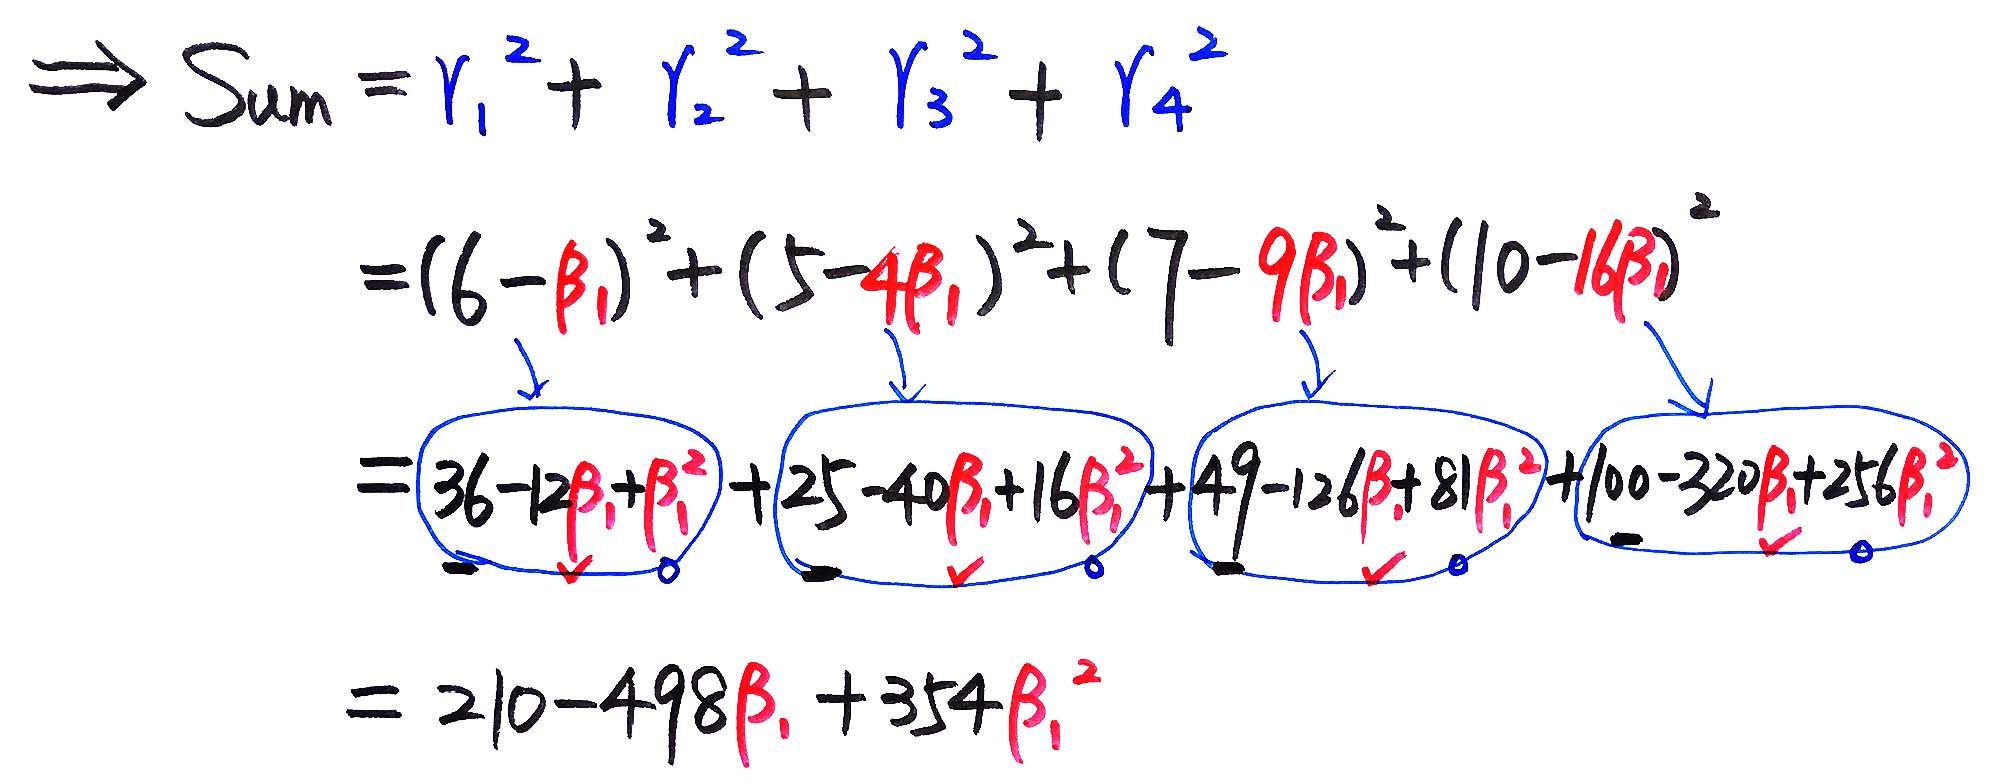 ⇒ Sum = r₁² + r₂² + r₃² + r₄²
= (6-β₁)² + (5-4β₁)² + (7-9β₁)² + (10-16β₁)²
= 36-12β₁+β₁² + 25-40β₁+16β₁² + 49-126β₁+81β₁² + 100-320β₁+256β₁²
= 210-498β₁ + 354β₁²